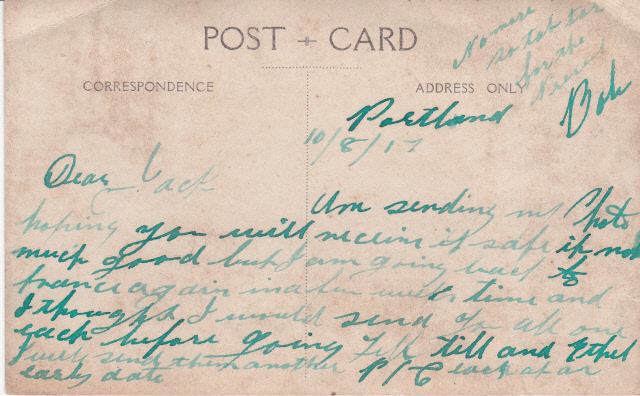 POST CARD
CORRESPONDENCE
ADDRESS ONLY
No more
so ta ta
for the
Bob
Portland
10/8/17
Dear Jack
Am sending my Photo
hoping you will receive it safe it not
much good but I am going back to
france again in a few weeks time and
I thought I would send you all one
each before going Tell till and Ethel
I will send them another P/C each at an
early date